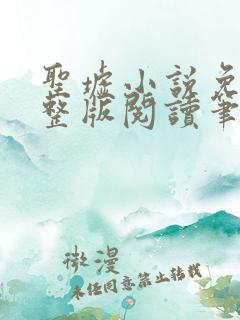 聖墟小說免
整版閱讀筆
微漫
未經同意禁止轉載